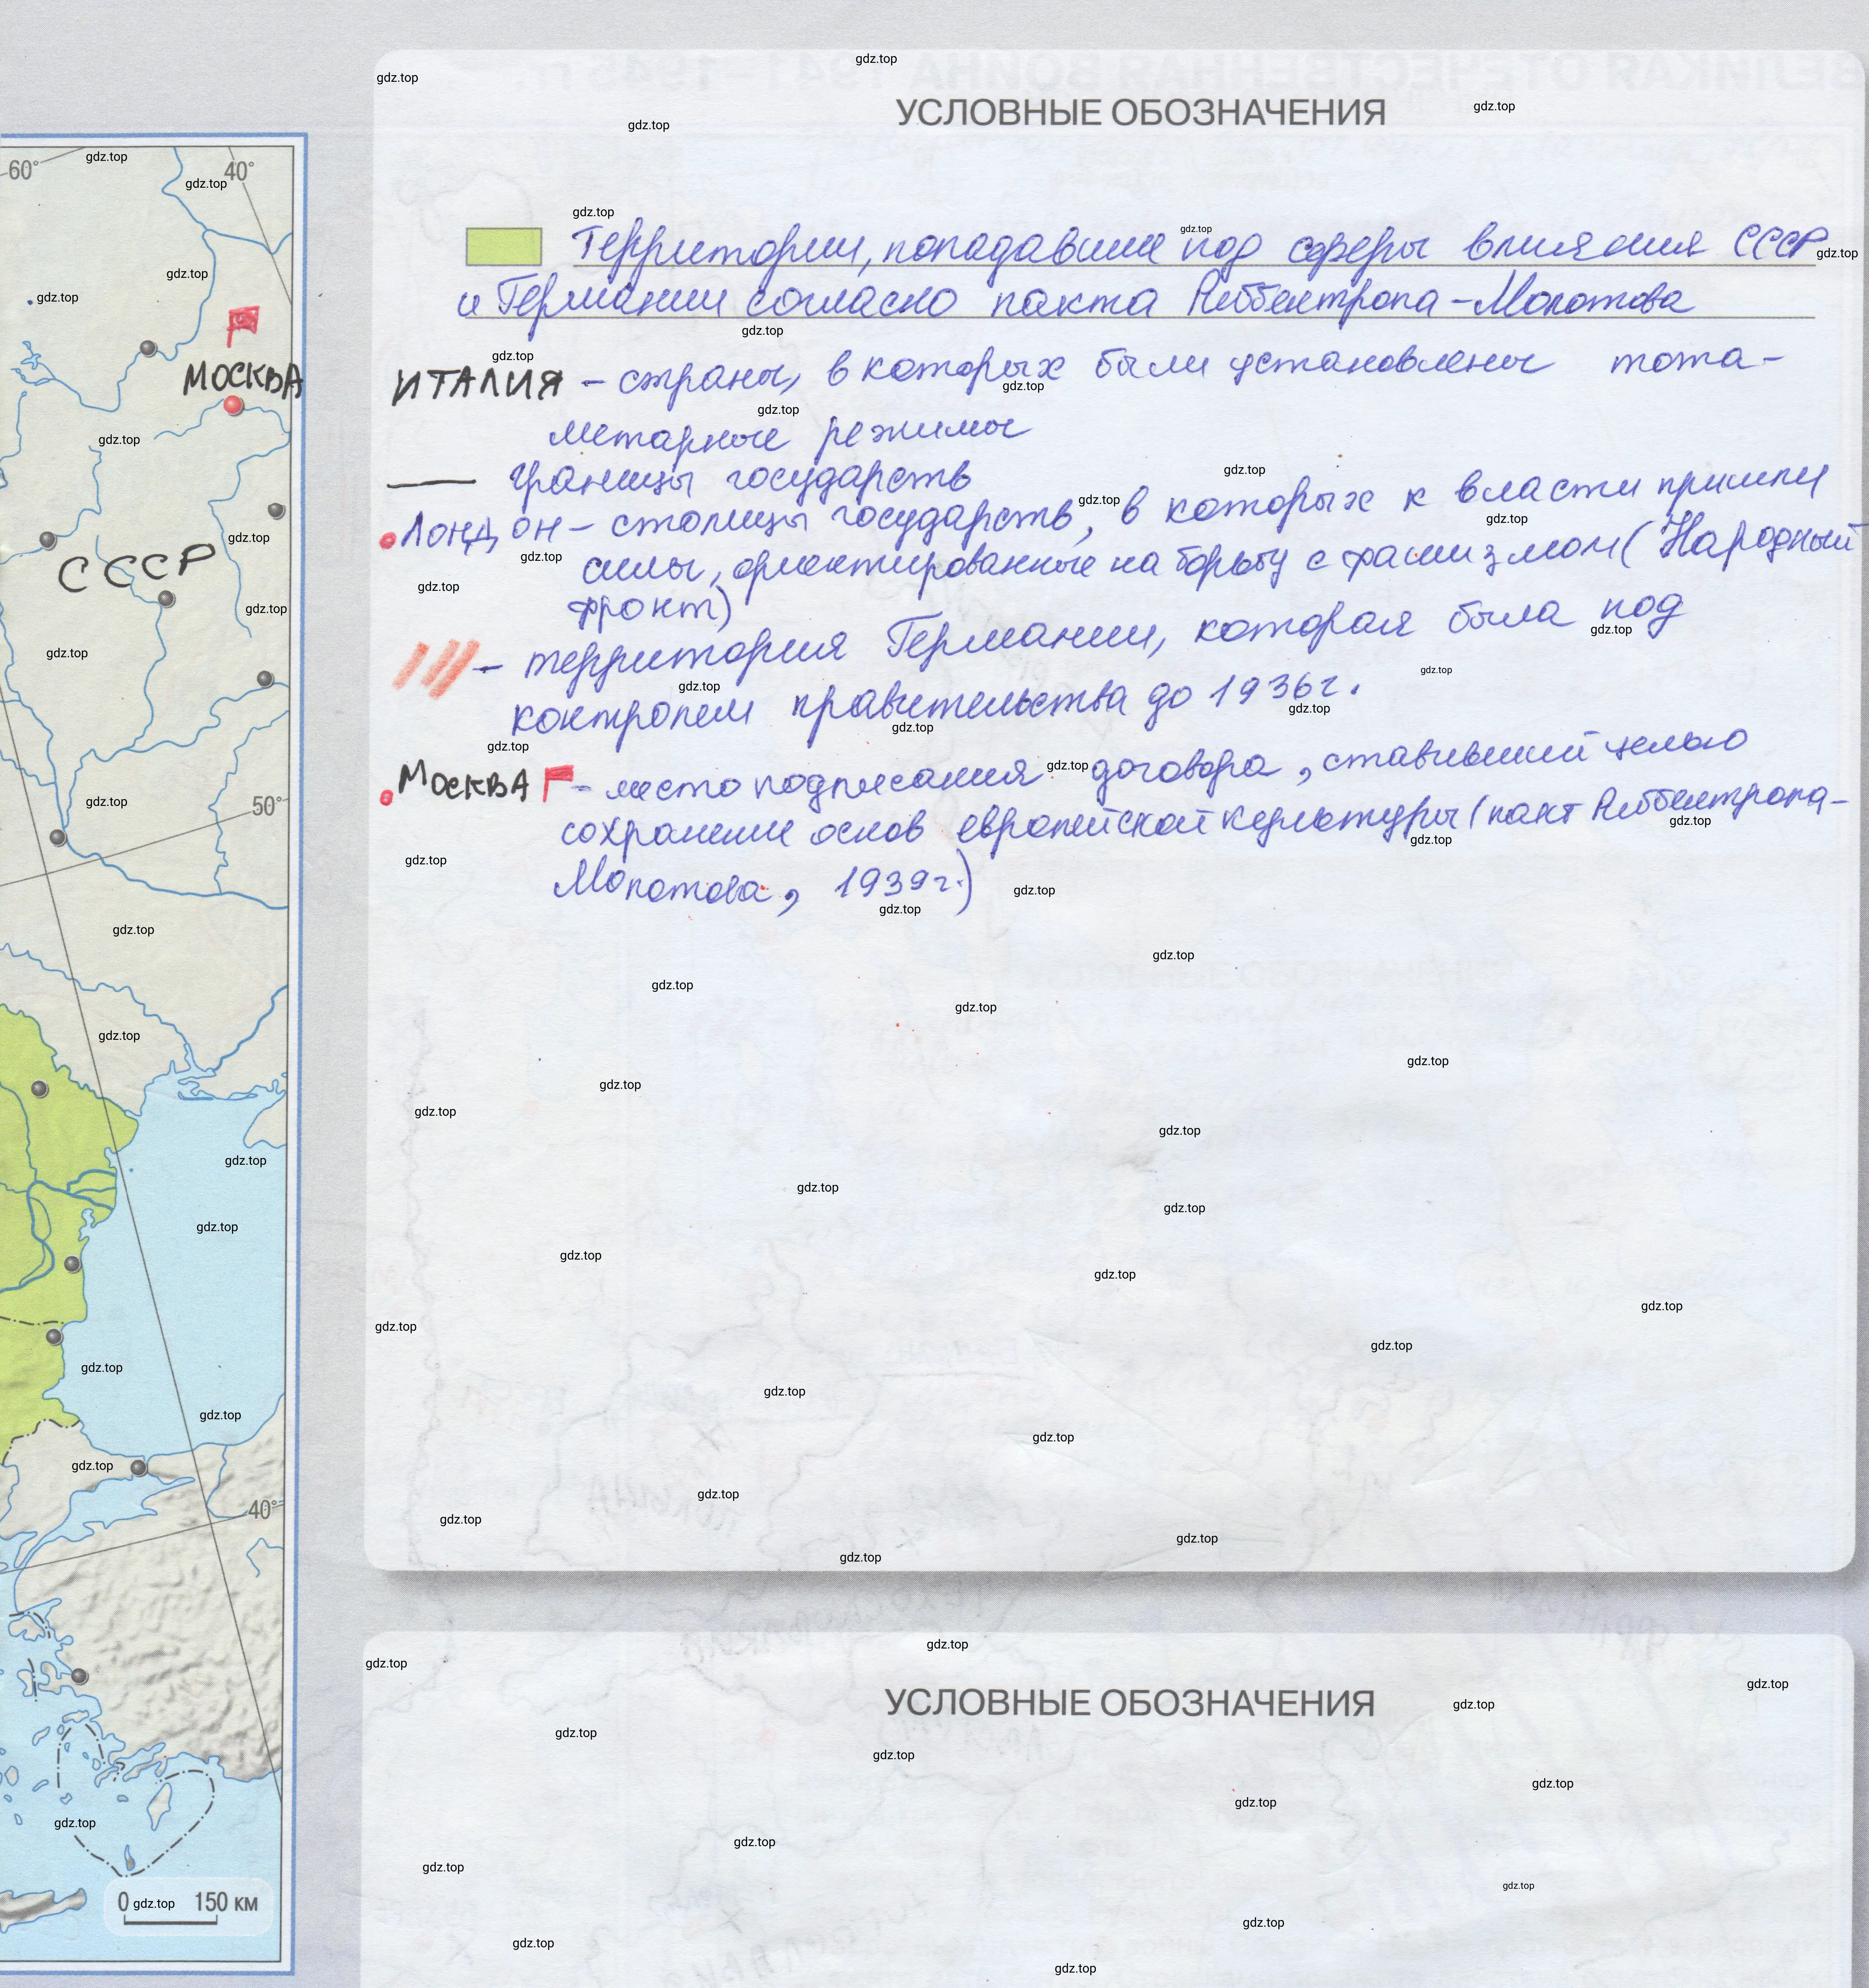 60°
40°
МОСКВА
СССР
50°
40°
0 150 км
УСЛОВНЫЕ ОБОЗНАЧЕНИЯ
Территории, попадавшие под сферы влияния СССР
и Германии согласно пакта Риббентропа-Молотова
ИТАЛИЯ - страны, в которых были установлены тота-
литарные режимы
границы государств
Лондон - столицы государств, в которых к власти пришли
силы, ориентированные на борьбу с фашизмом (Народный
фронт)
- территория Германии, которая была под
контролем правительства до 1936г.
Москва - место подписания договора, ставивший целью
сохранение основ европейской культуры (пакт Риббентропа-
Молотова, 1939г.)
УСЛОВНЫЕ ОБОЗНАЧЕНИЯ
gdz.top